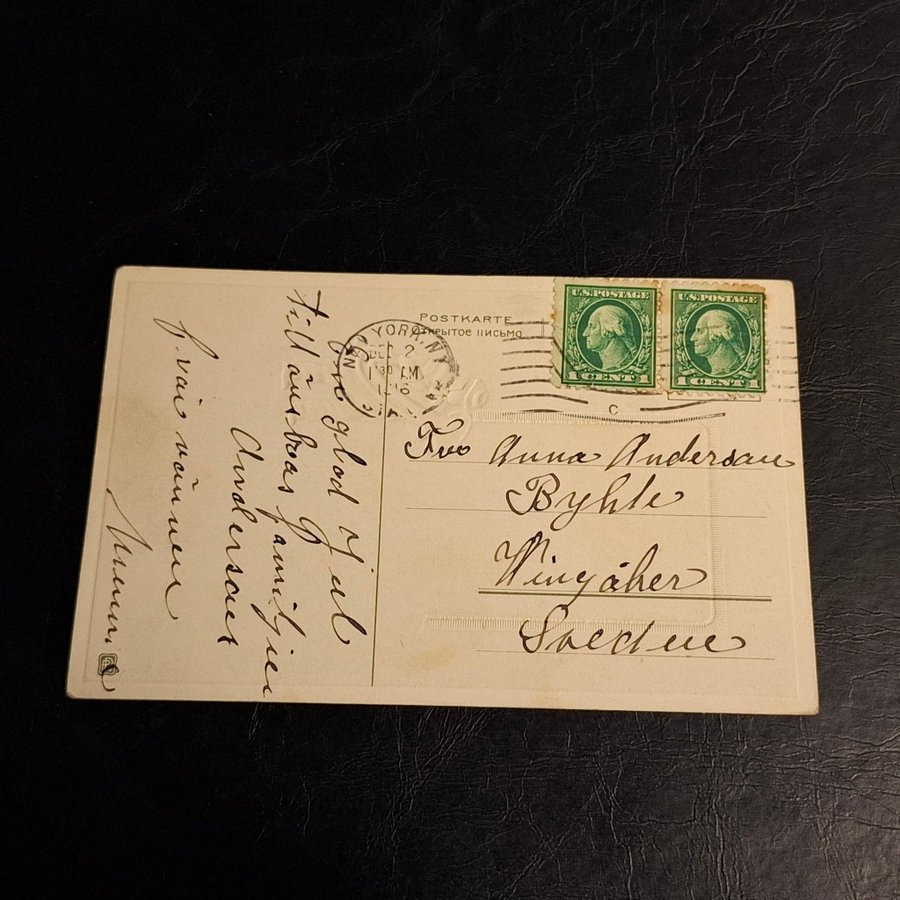 POSTKARTE
Открытое письмо
NEW YORK, N.Y.
DEC 2
1 30 AM
1916
U.S. POSTAGE
1 CENT 1
U.S. POSTAGE
1 CENT 1
En glad Jul
till önskas familjen
Anderson
från vännen
Fru Anna Anderson
Byhle
Wingåker
Sveden